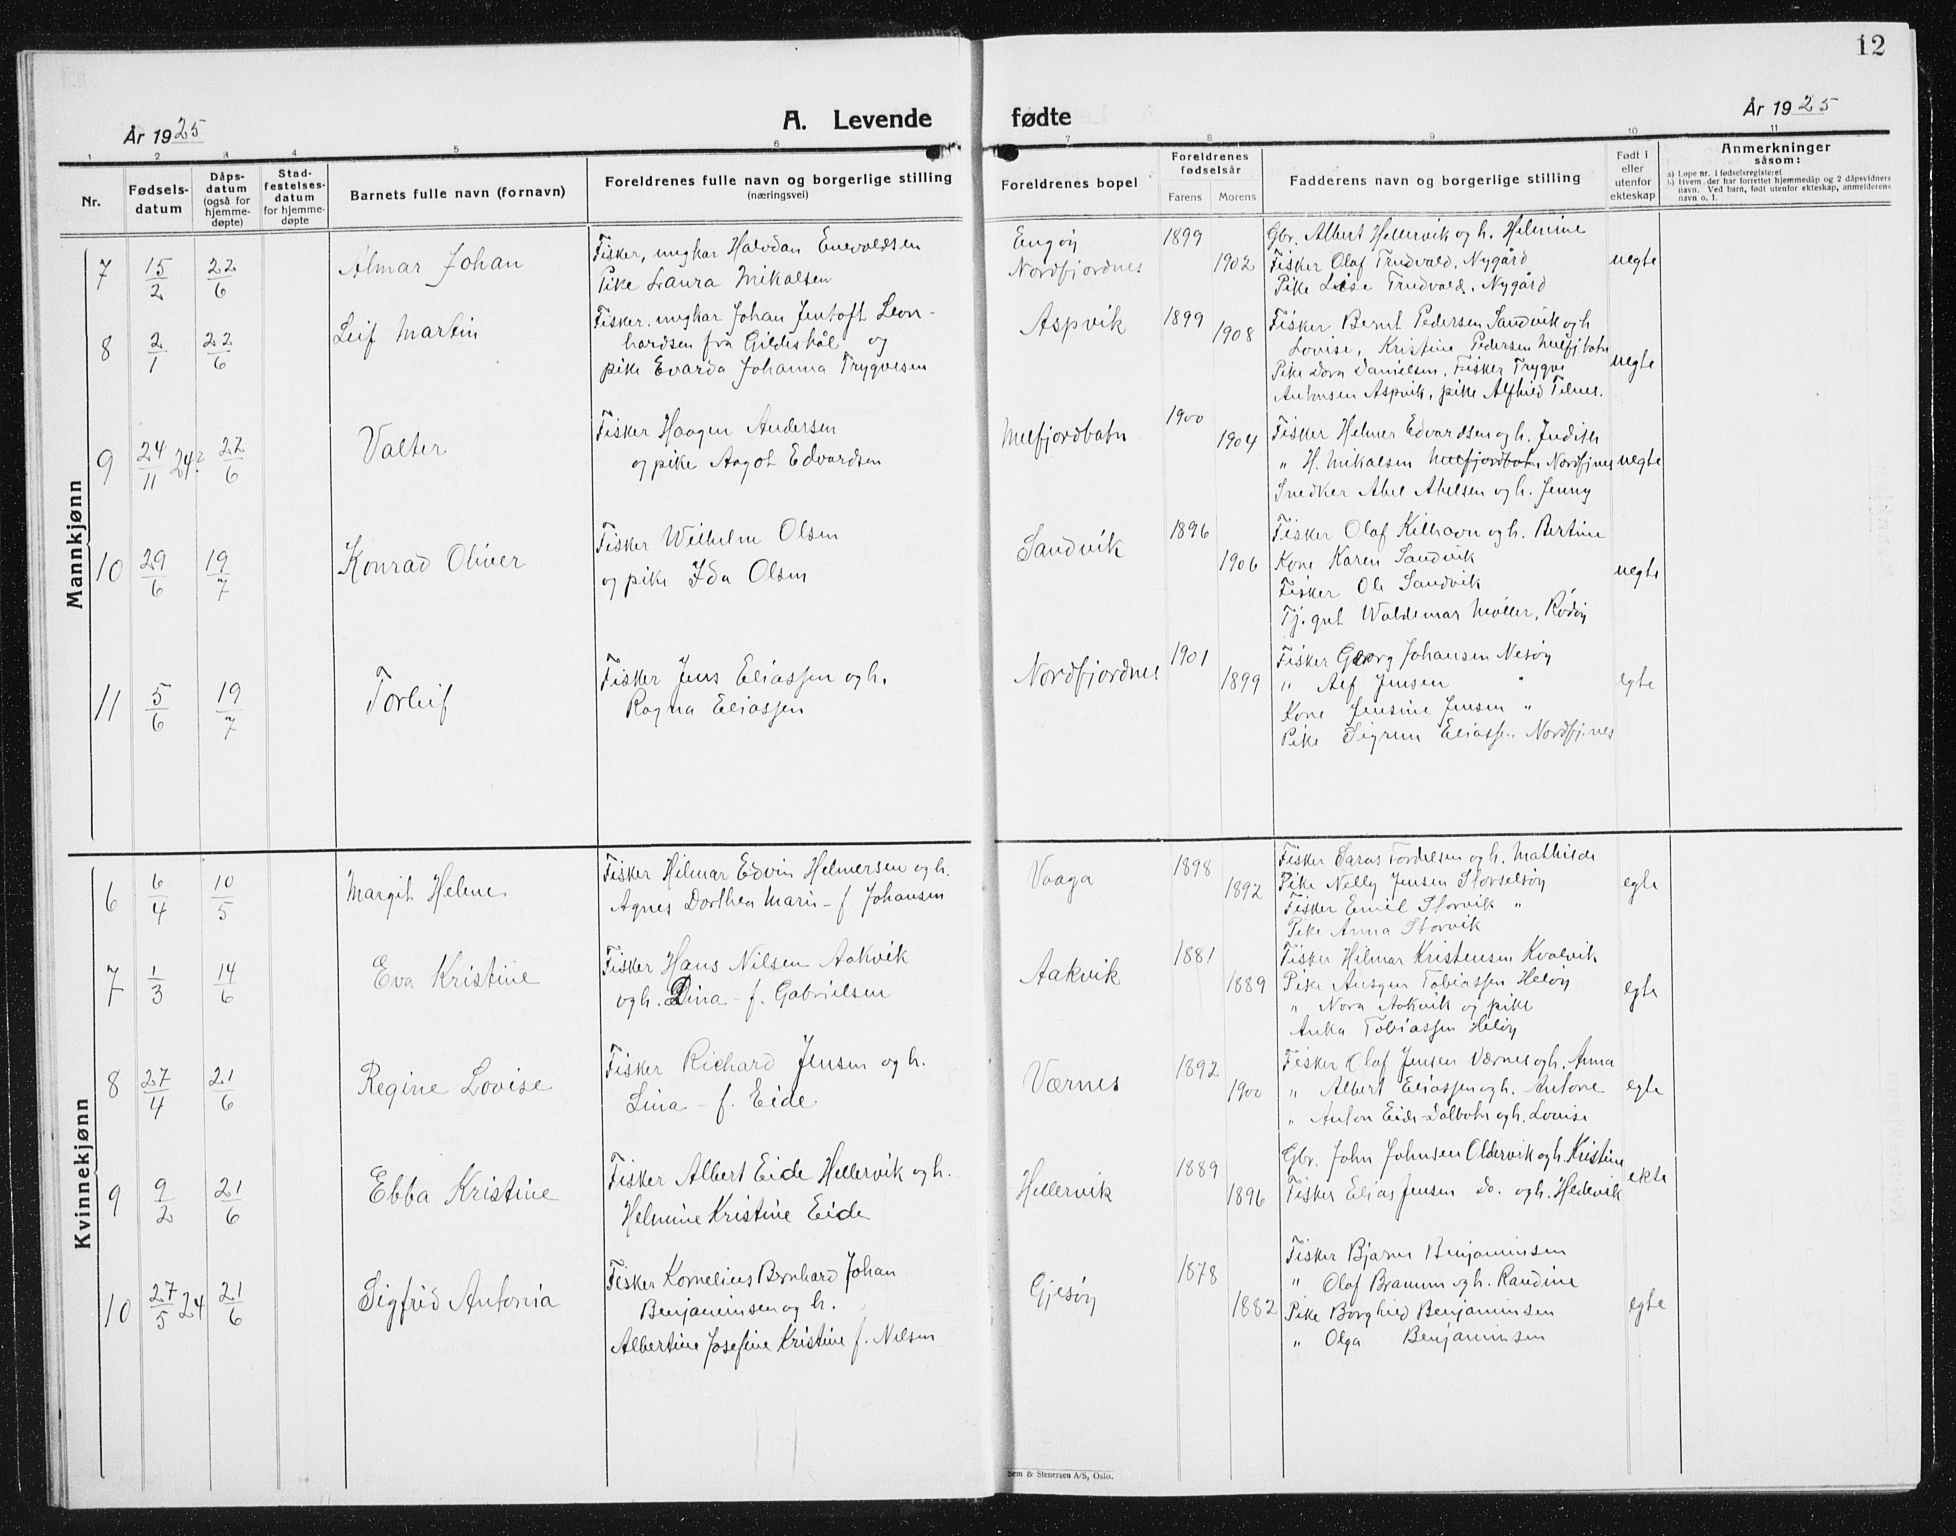 12
År 1925
A. Levende fødte
År 1925
1 2 3 4 5 6 7 8 9 10 11
Nr.
Fødsels-
datum
Dåps-
datum
(også for
hjemme-
døpte)
Stad-
festelses-
datum
for hjemme-
døpte
Barnets fulle navn (fornavn)
Foreldrenes fulle navn og borgerlige stilling
(næringsvei)
Foreldrenes bopel
Foreldrenes
fødselsår
Farens Morens
Fadderens navn og borgerlige stilling
Født i
eller
utenfor
ekteskap
Anmerkninger
såsom:
a) Løpe nr. i fødselsregisteret
b) Hvem, der har forrettet hjemmedåp og 2 dåpsvidners
navn. Ved barn, født utenfor ekteskap, anmelderens
navn o. l.
Mannkjønn
7 15/2 22/6 Almar Johan
Fisker, ungkar Halvdan Enevoldsen
Pike Laura Mikalsen
Engøy
Nordfjordnes
1899 1902
Gbr. Albert Hellervik og h. Helmine
Fisker Olaf Trudvald, Nygård
Pike Lise Trudvald, Nygård
uegte
8 2/1 22/6 Leif Martin
Fisker, ungkar Johan Jentoft Leon-
hardsen frå Gildeskål og
pike Evarda Johanna Trygvesen
Aspvik
1899 1908
Fisker Bernt Pedersen Sandvik og h
Lovise, Kristine Pedersen Melfj.botn
Pike Dora Danielsen, Fisker Trygve
Antonsen Aspvik, pike Alfhild Tilnes.
uegte
9 24/11 24? 22/6 Valter
Fisker Haagen Andersen
og pike Aagot Edvardsen
Melfjordbotn
1900 1904
Fisker Helmer Edvardsen og h. Judith
" H. Mikalsen Melfjordbotn Nordfjnes
Snedker Abel Abelsen og h. Jenny
uegte
10 29/6 19/7 Konrad Oliver
Fisker Wilhelm Olsen
og pike Ida Olsen
Sandvik
1896 1906
Fisker Olaf Kilhavn og h. Bertine
Kone Karen Sandvik
Fisker Ole Sandvik
Tj.gut Waldemar Møller, Rødøy
uegte
11 5/6 19/7 Torleif
Fisker Jens Eliassen og h.
Ragna Eliassen
Nordfjordnes
1901 1899
Fisker Georg Johansen Nesøy
" Alf Jensen "
Kone Jensine Jensen "
Pike Sigrun Eliass. Nordfj.nes
egte
Kvinnekjønn
6 6/4 10/5 Margit Helene
Fisker Hilmar Edvin Helmersen og h.
Agnes Dorthea Marie - f. Johansen
Vaaga
1898 1892
Fisker Saras Tordelsen og h. Mathilde
Pike Nelly Jensen Storselsøy
Fisker Emil Storvik "
Pike Anna Storvik
egte
7 1/3 14/6 Eva Kristine
Fisker Hans Nilsen Aakvik
og h. Dina - f. Gabrielsen
Aakvik
1881 1889
Fisker Hilmar Kristensen Kvalvik
Pike Ausgun Tobiassen Heløy
" Nora Aakvik og pike
Anka Tobiassen Heløy
egte
8 27/4 21/6 Regine Lovise
Fisker Richard Jensen og h.
Lina - f. Eide
Værnes
1892 1900
Fisker Olaf Jensen Værnes og h. Anna
" Albert Eliassen og h. Antone
" Anton Eide Dalbotn og h. Lovise
egte
9 9/2 21/6 Ebba Kristine
Fisker Albert Eide Hellervik og h.
Helmine Kristine Eide
Hellervik
1889 1896
Gbr. John Johnsen Oldervik og h. Kristine
Fisker Elias Jensen do. og h. Hedevik
ekte
10 27/5 24 21/6 Sigfrid Antonia
Fisker Kornelius Bernhard Johan
Benjaminsen og h.
Albertine Josefine Kristine f. Nilsen
Gjesøy
1878 1882
Fisker Bjarne Benjaminsen
" Olaf Bramun og h. Randine
Pike Borghild Benjaminsen
" Olga Benjaminsen
egte
Sem & Stenersen A/S, Oslo.